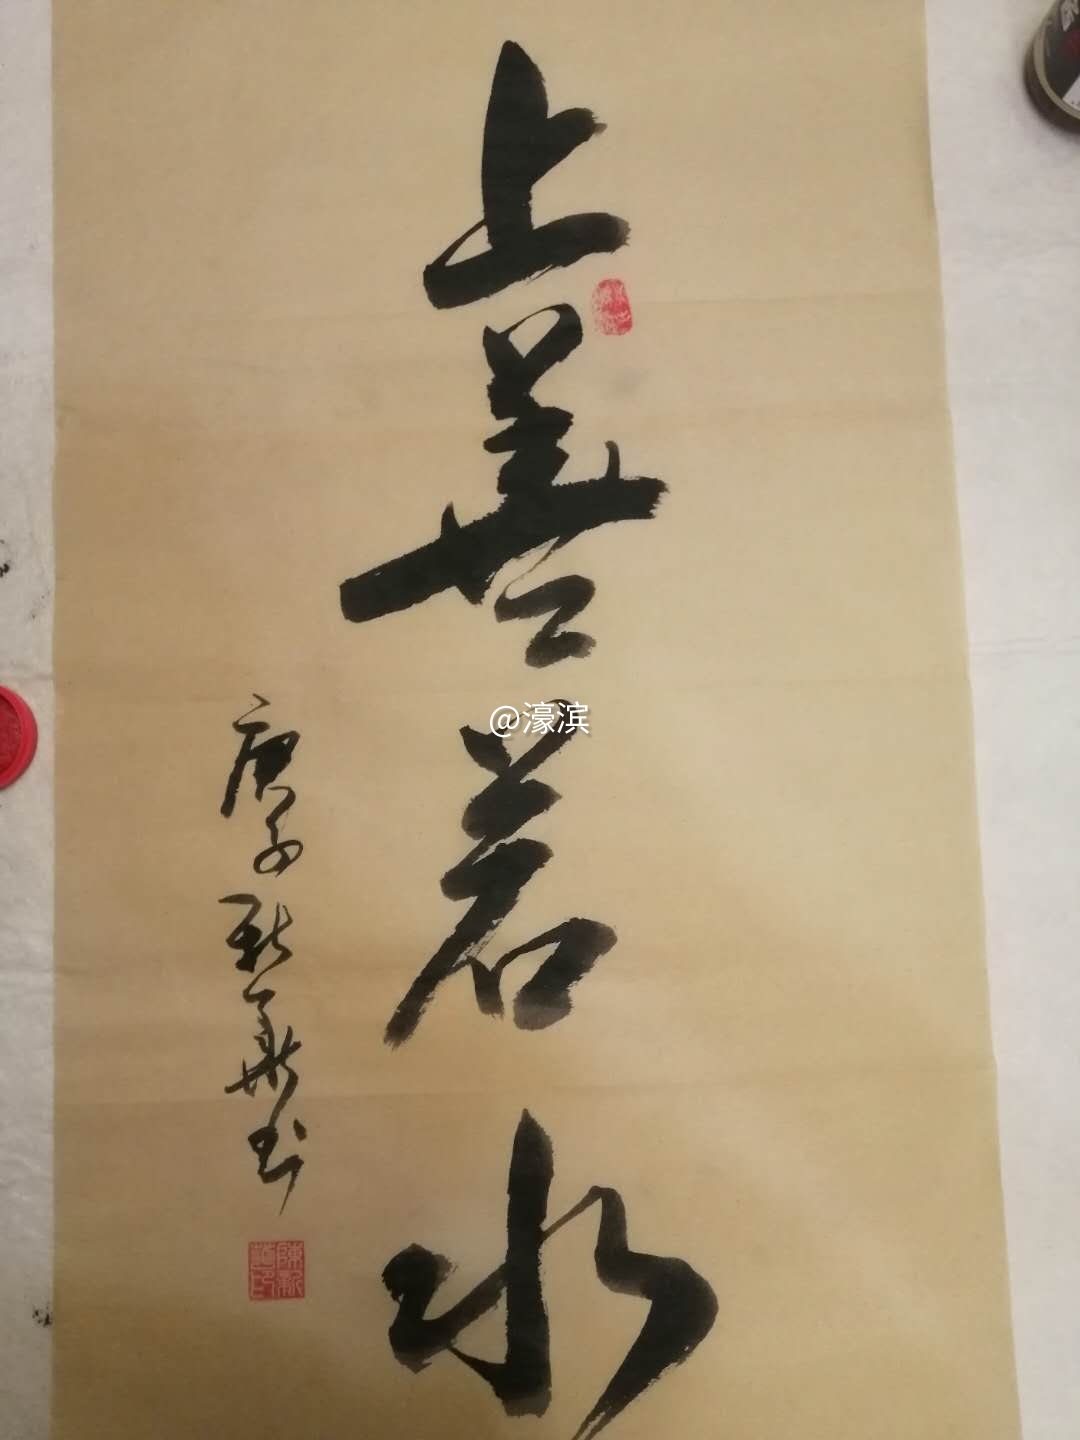 上善若水
庚子新華书
@濠滨